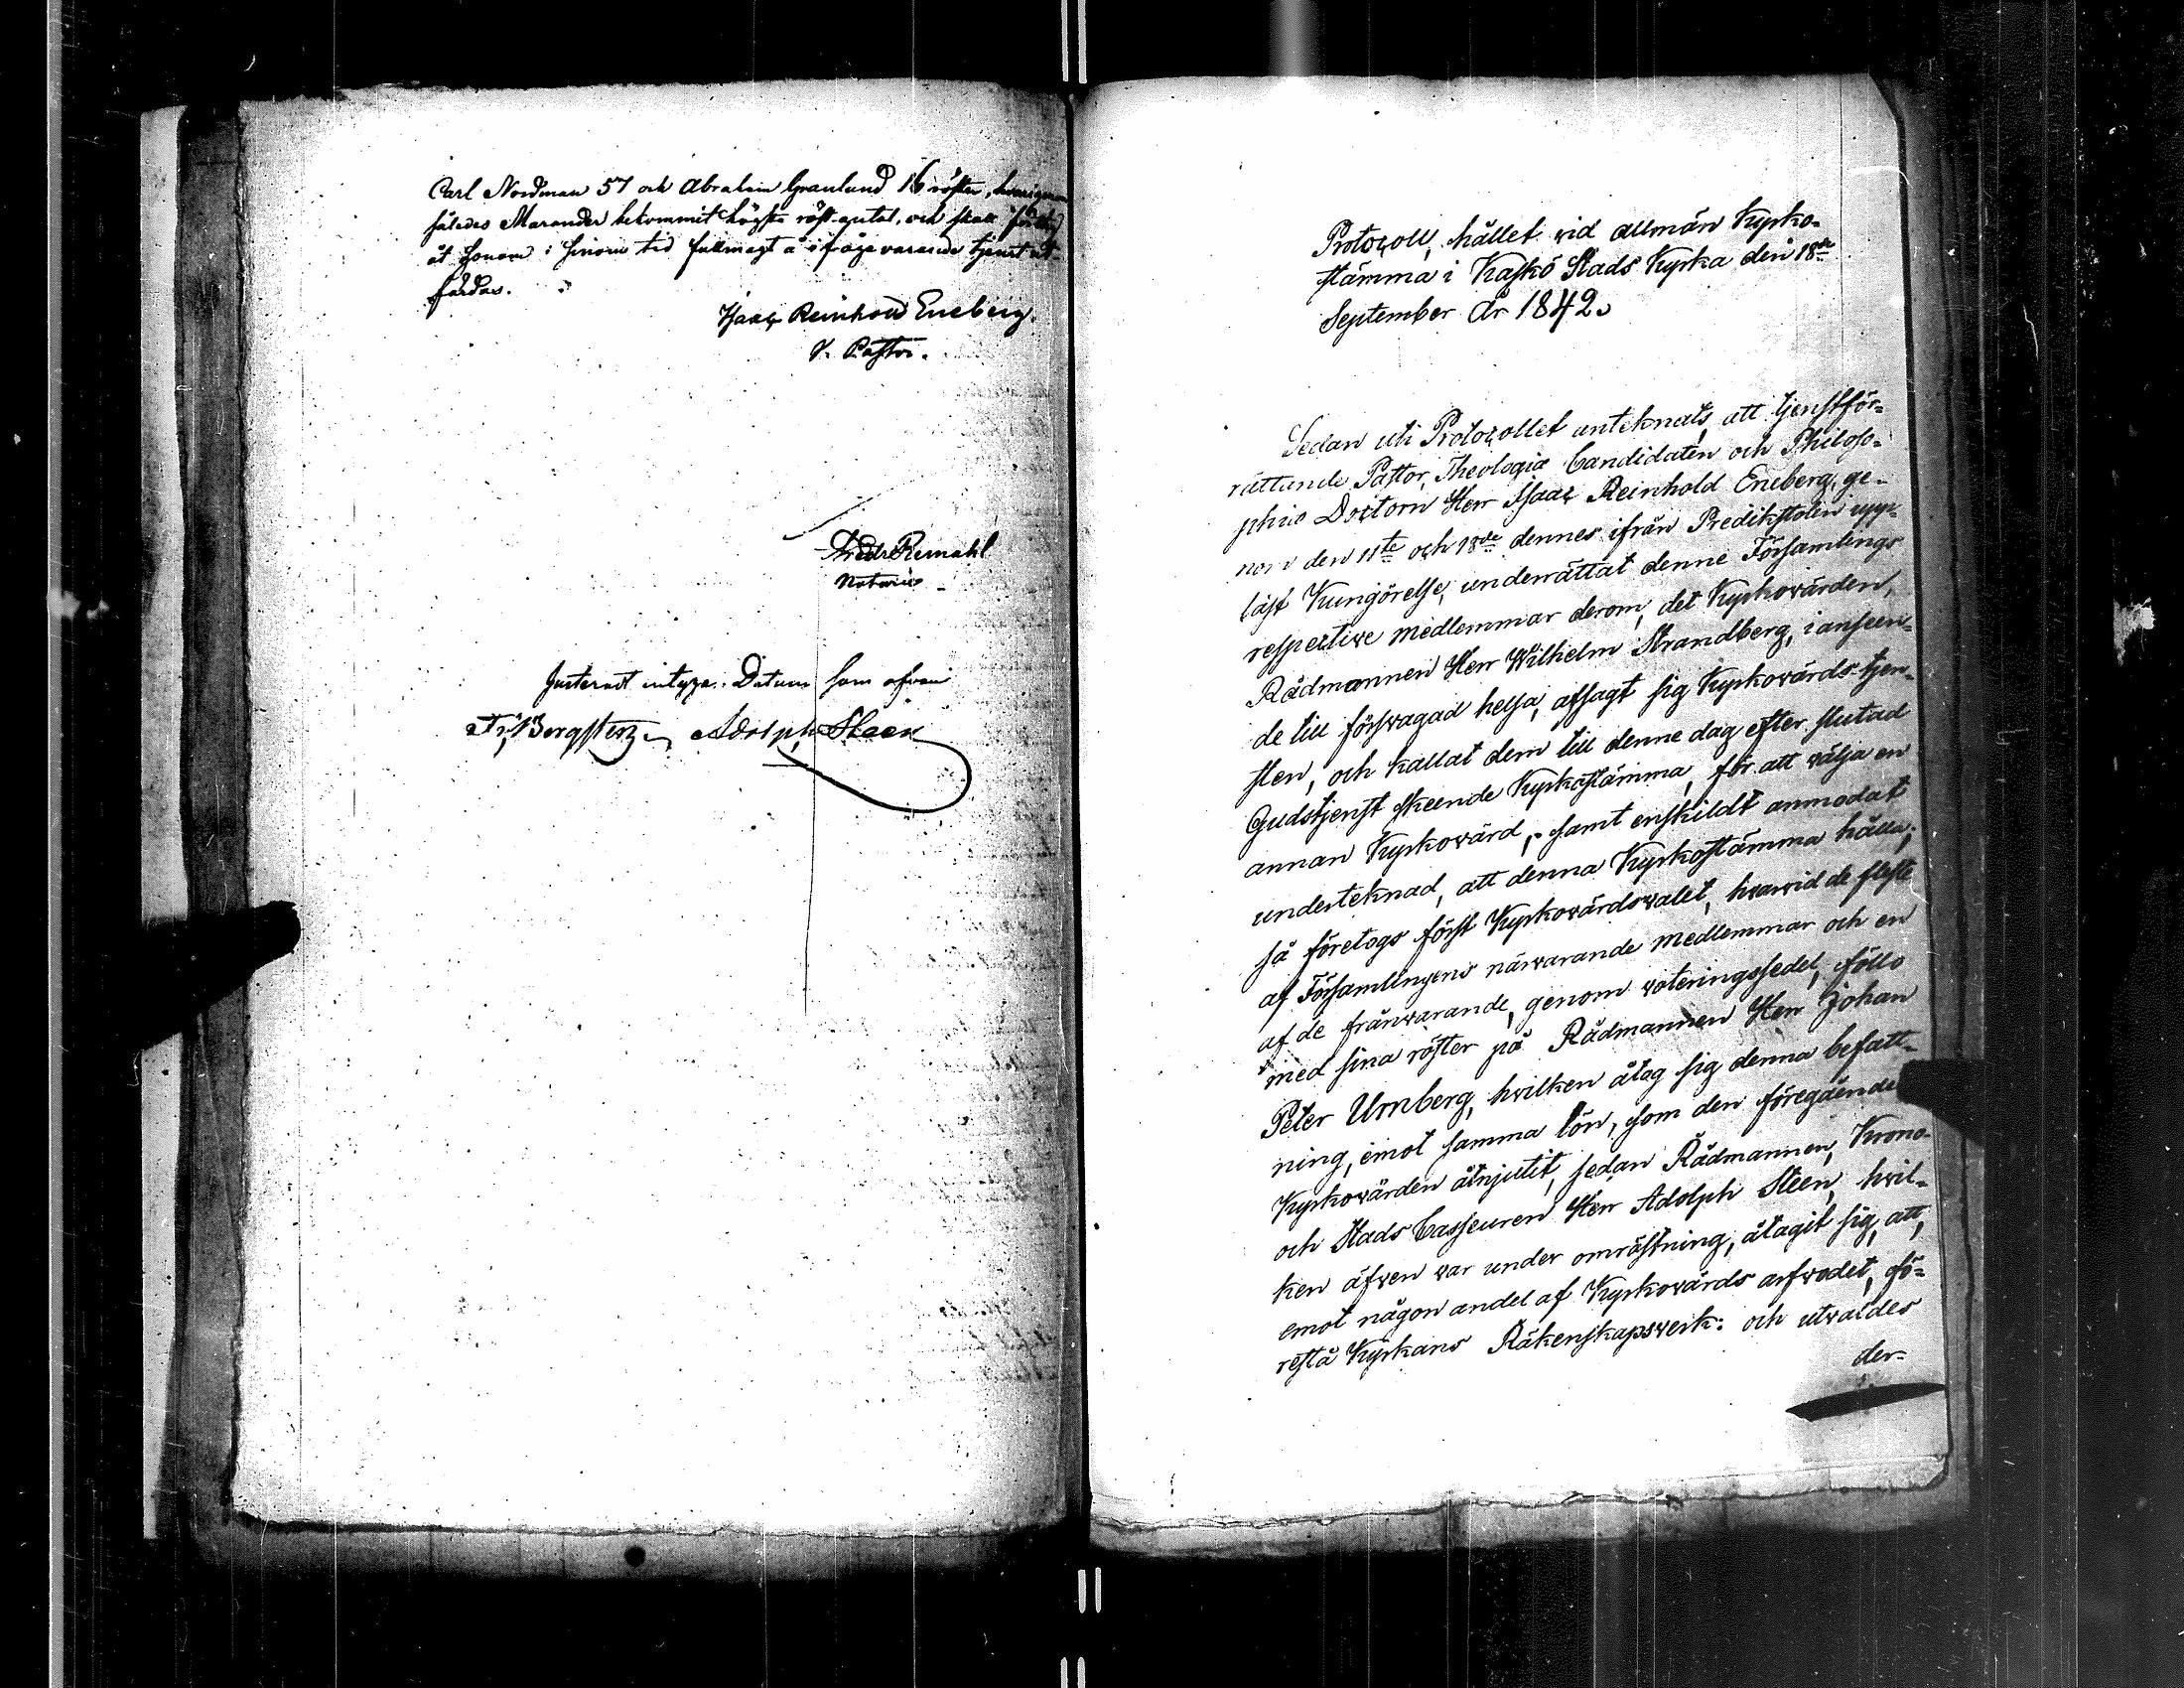 Carl Nordman 57 och Abraham Granlund 16 röster, hvarigenom
således Marander bekommit högsta röst-antal, och skall
åt honom i sinom tid fullmagt å ifrågavarande tjenst ut-
färdas.
Isaac Reinhold Eneberg.
V. Pastor.
Notarie
Justeradt intyga: Datum som ofvan
Bergsten Adolph Steen
Protocoll, hållet vid allmän Kyrko-
stämma i Kaskö Stads Kyrka den 18de
September År 1842.
Sedan uti Protocollet anteknats, att tjenstför=
rättande Pastor, Theologiæ Candidaten och Philoso=
phiæ Doctorn Herr Isaac Reinhold Eneberg, ge-
nom den 11te och 18de dennes ifrån Predikstolen upp-
läst Kungörelse, underrättat denne Församlings
respective medlemmar derom, det Kyrkowärden,
Rådmannen Herr Wilhelm Strandberg, i anseen-
de till förswagad helsa, afsagt sig Kyrkowärds-tjen-
sten, och kallat dem till denne dag efter slutad
Gudstjenst skeende Kyrkostämma, för att wälja en
annan Kyrkowärd, samt enskildt anmodat
underteknad, att denna Kyrkostämma hålla;
så företogs först Kyrkowärdswalet, hwarwid de fleste
af Församlingens närwarande medlemmar och en
af de frånwarande, genom voteringssedel, föllo
med sina röster på Rådmannen Herr Johan
Peter Urnberg, hwilken åtog sig denna befatt-
ning, emot samma lön, som den föregående
Kyrkowärden åtnjutit, sedan Rådmannen, Krono-
och Stads Casseuren Herr Adolph Steen, hwil-
ken äfwen war under omröstning, åtagit sig, att,
emot någon andel af Kyrkowärds arfwodet, fö=
restå Kyrkans Räkenskapswerk: och utwaldes
der-